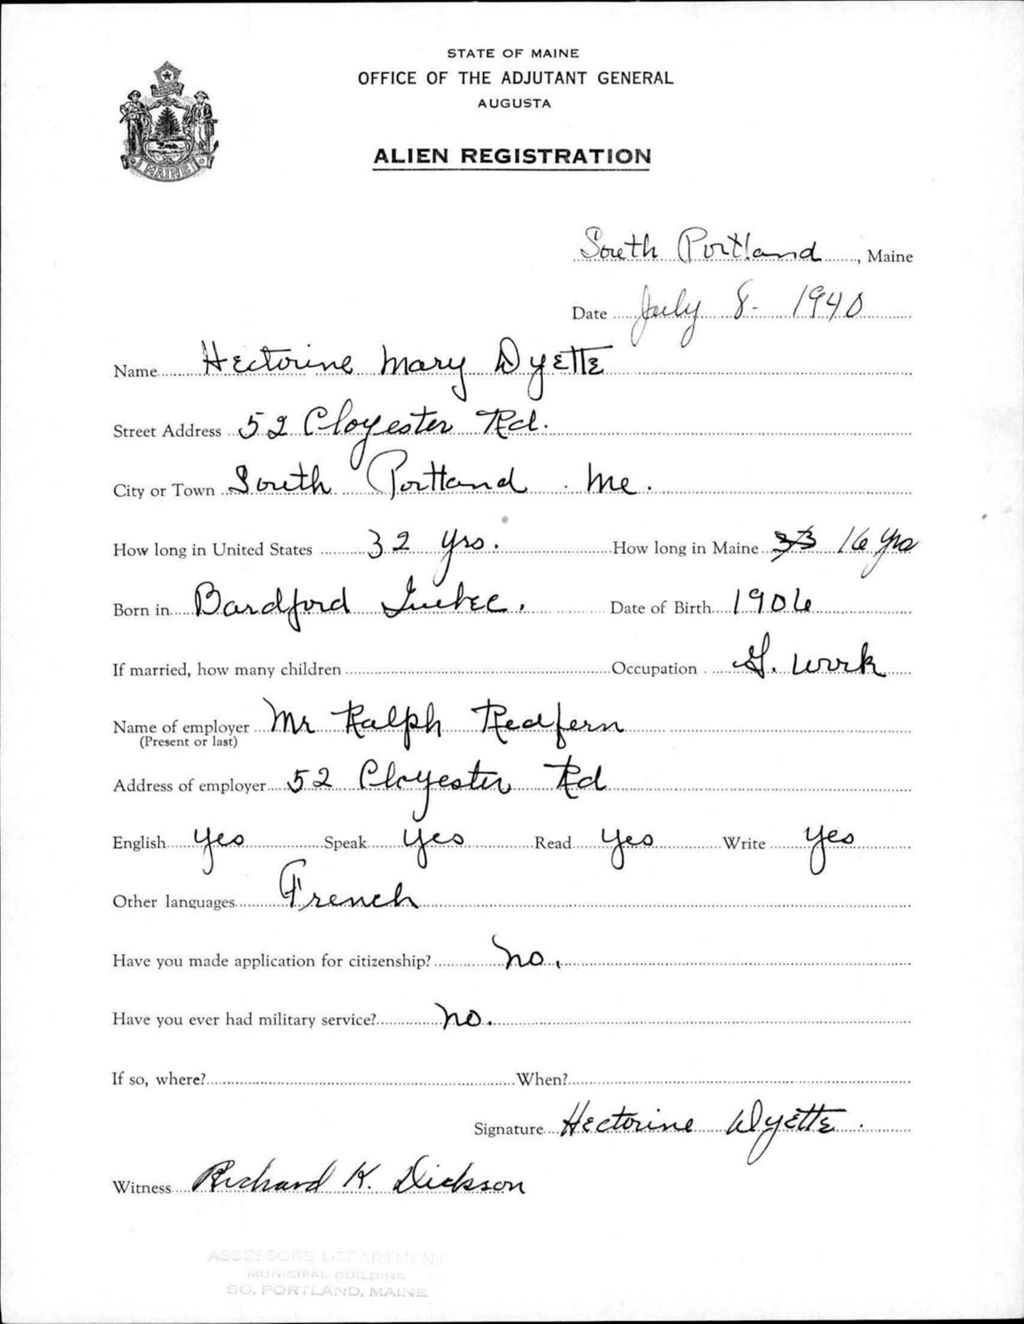 STATE OF MAINE
OFFICE OF THE ADJUTANT GENERAL
AUGUSTA
ALIEN REGISTRATION
MAINE
South Portland, Maine
Date July 8 - 1940
Name Hectorine Mary Dyette
Street Address 52 Cloyester Rd.
City or Town South Portland. Me.
How long in United States 32 yrs. How long in Maine 33 16 yrs
Born in Bardford Quebec. Date of Birth 1906
If married, how many children Occupation G. work
Name of employer Mr Ralph Redfern
(Present or last)
Address of employer 52 Cloyester Rd
English yes Speak yes Read yes Write yes
Other languages French
Have you made application for citizenship? no.
Have you ever had military service? no.
If so, where? When?
Signature Hectorine Dyette.
Witness Richard K. Dickson
ASSESSORS DEPARTMENT
MUNICIPAL BUILDING
SO. PORTLAND, MAINE